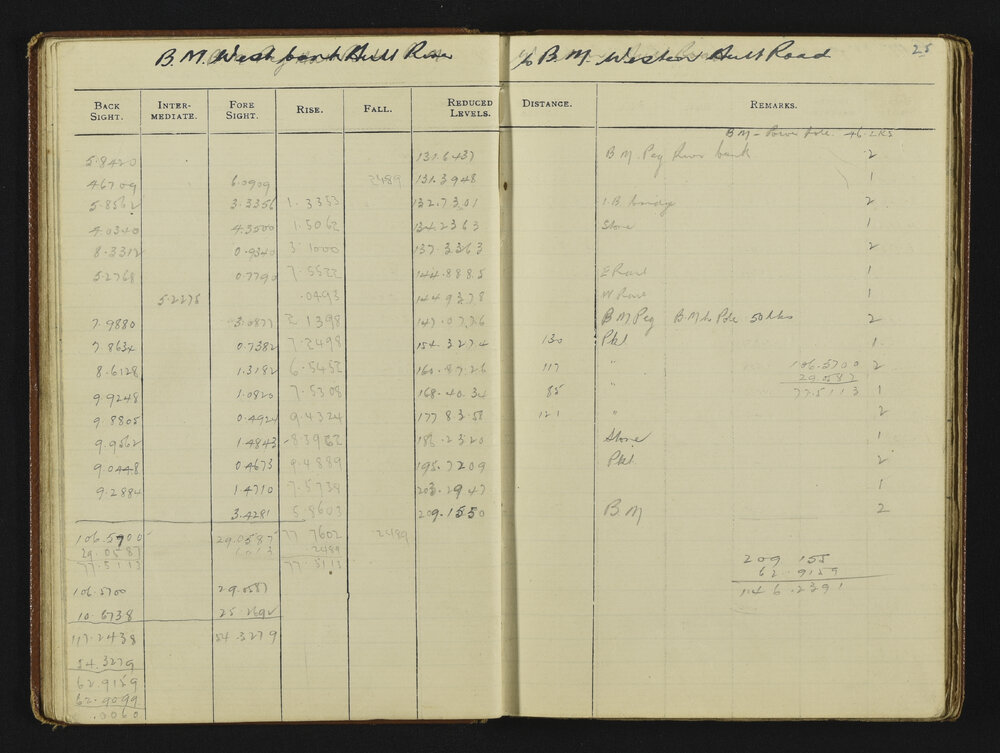 B.M. West bank Hutt River to B.M. Western Hutt Road 25
BACK SIGHT. INTER-MEDIATE. FORE SIGHT. RISE. FALL. REDUCED LEVELS. DISTANCE. REMARKS.
BM - Power Pole. 46 LKS
5.8420 131.6437 B.M. Peg River bank 2
4.6709 6.0909 2489 131.3948 1
5.8562 3.3356 1.3353 132.7301 2
4.0340 4.3500 1.5062 134.2363 Stone 1
8.3312 0.9340 3.1000 137.3363 2
5.2768 0.7790 7.5522 144.8885 E Rail 1
5.2275 .0493 144.9378 W Rail 1
7.9880 3.0877 2.1398 147.0776 B M Peg B.M. to Pole 50 lks 2
7.8634 0.7382 7.2498 154.3274 130 Pkt 1
8.6128 1.3182 6.5452 160.8726 117 " 106.5700 2
29.0587
9.9248 1.0820 7.5308 168.4034 85 " 77.5113 1
9.8805 0.4924 9.4324 177.8358 121 " 2
9.9562 1.4843 8.3962 186.2320 Stone 1
9.0448 0.4673 9.4889 195.7209 Pkt 2
9.2884 1.4710 7.5738 203.2947 1
3.4281 5.8603 209.1550 B.M 2
106.5700 29.0587 77.7602 2489
29.0587 2489
77.5113 77.5113
209.155
62.9159
146.2391
106.5700 29.0587
10.6738 25.2692
117.2438 54.3279
54.3279
62.9159
62.9099
.0060